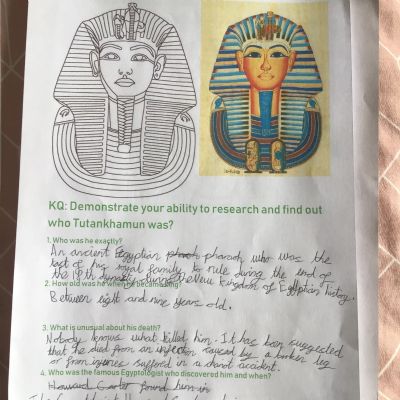 KQ: Demonstrate your ability to research and find out
who Tutankhamun was?
1. Who was he exactly?
An ancient Egyptian pharaoh who was the
last of his royal family to rule during the end of
the 18th dynasty during the New Kingdom of Egyptian history.
2. How old was he when he became king?
Between eight and nine years old.
3. What is unusual about his death?
Nobody knows what killed him. It has been suggested
that he died from an infection caused by a broken leg
or from injuries suffered in a chariot accident.
4. Who was the famous Egyptologist who discovered him and when?
Howard Carter found him in